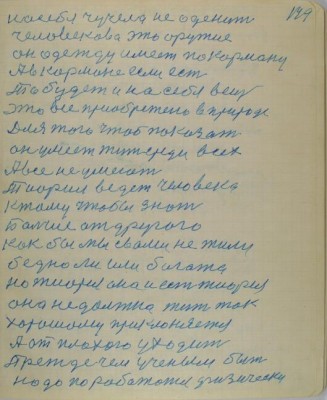 147
на себя чучела не оденит
человекова это оружие
он одежду имеет по карману
А в кормане если ест
То будет и на себя вещ
Это все приобретено в природе
Для того чтоб показат
он умеет жит среди всех
А все не умеют
Теория ведет человека
к тому чтобы знат
Болше от другого
как бы мы свами не жили
бедно ли или богата
но теория она и ест теория
она не должна жит так
хорошому приклоняется
А от плохого уходит
Прежде чем ученым быт
надо поработат физически